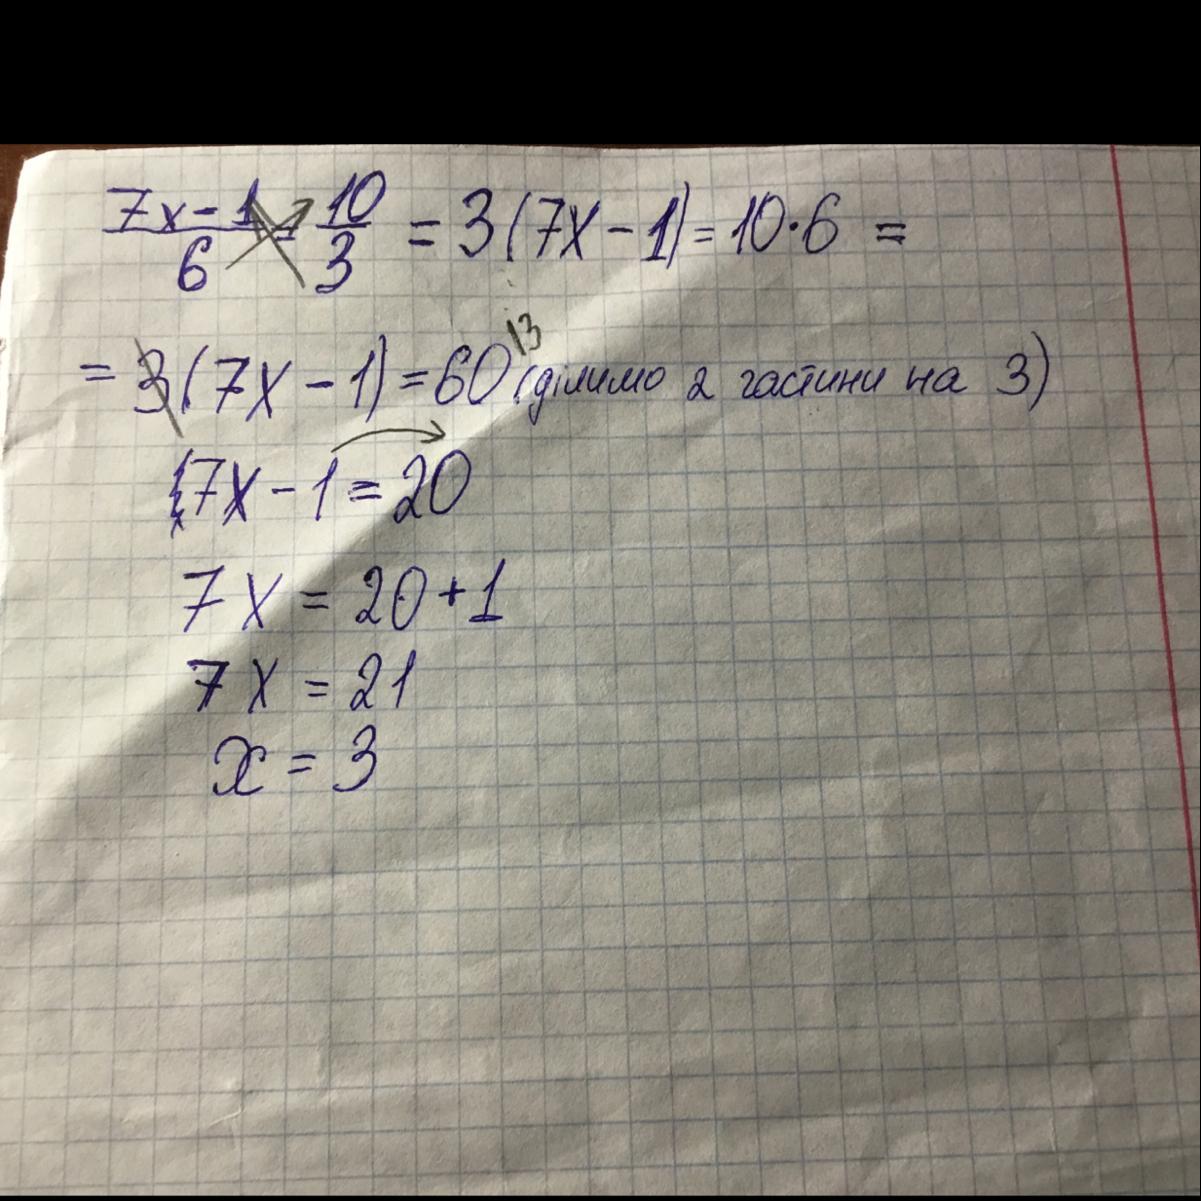 7x-1/6 = 10/3 = 3(7x-1) = 10·6 =
= 3(7x-1) = 60 |3 (ділимо 2 частини на 3)
7x-1 = 20
7x = 20+1
7x = 21
x = 3